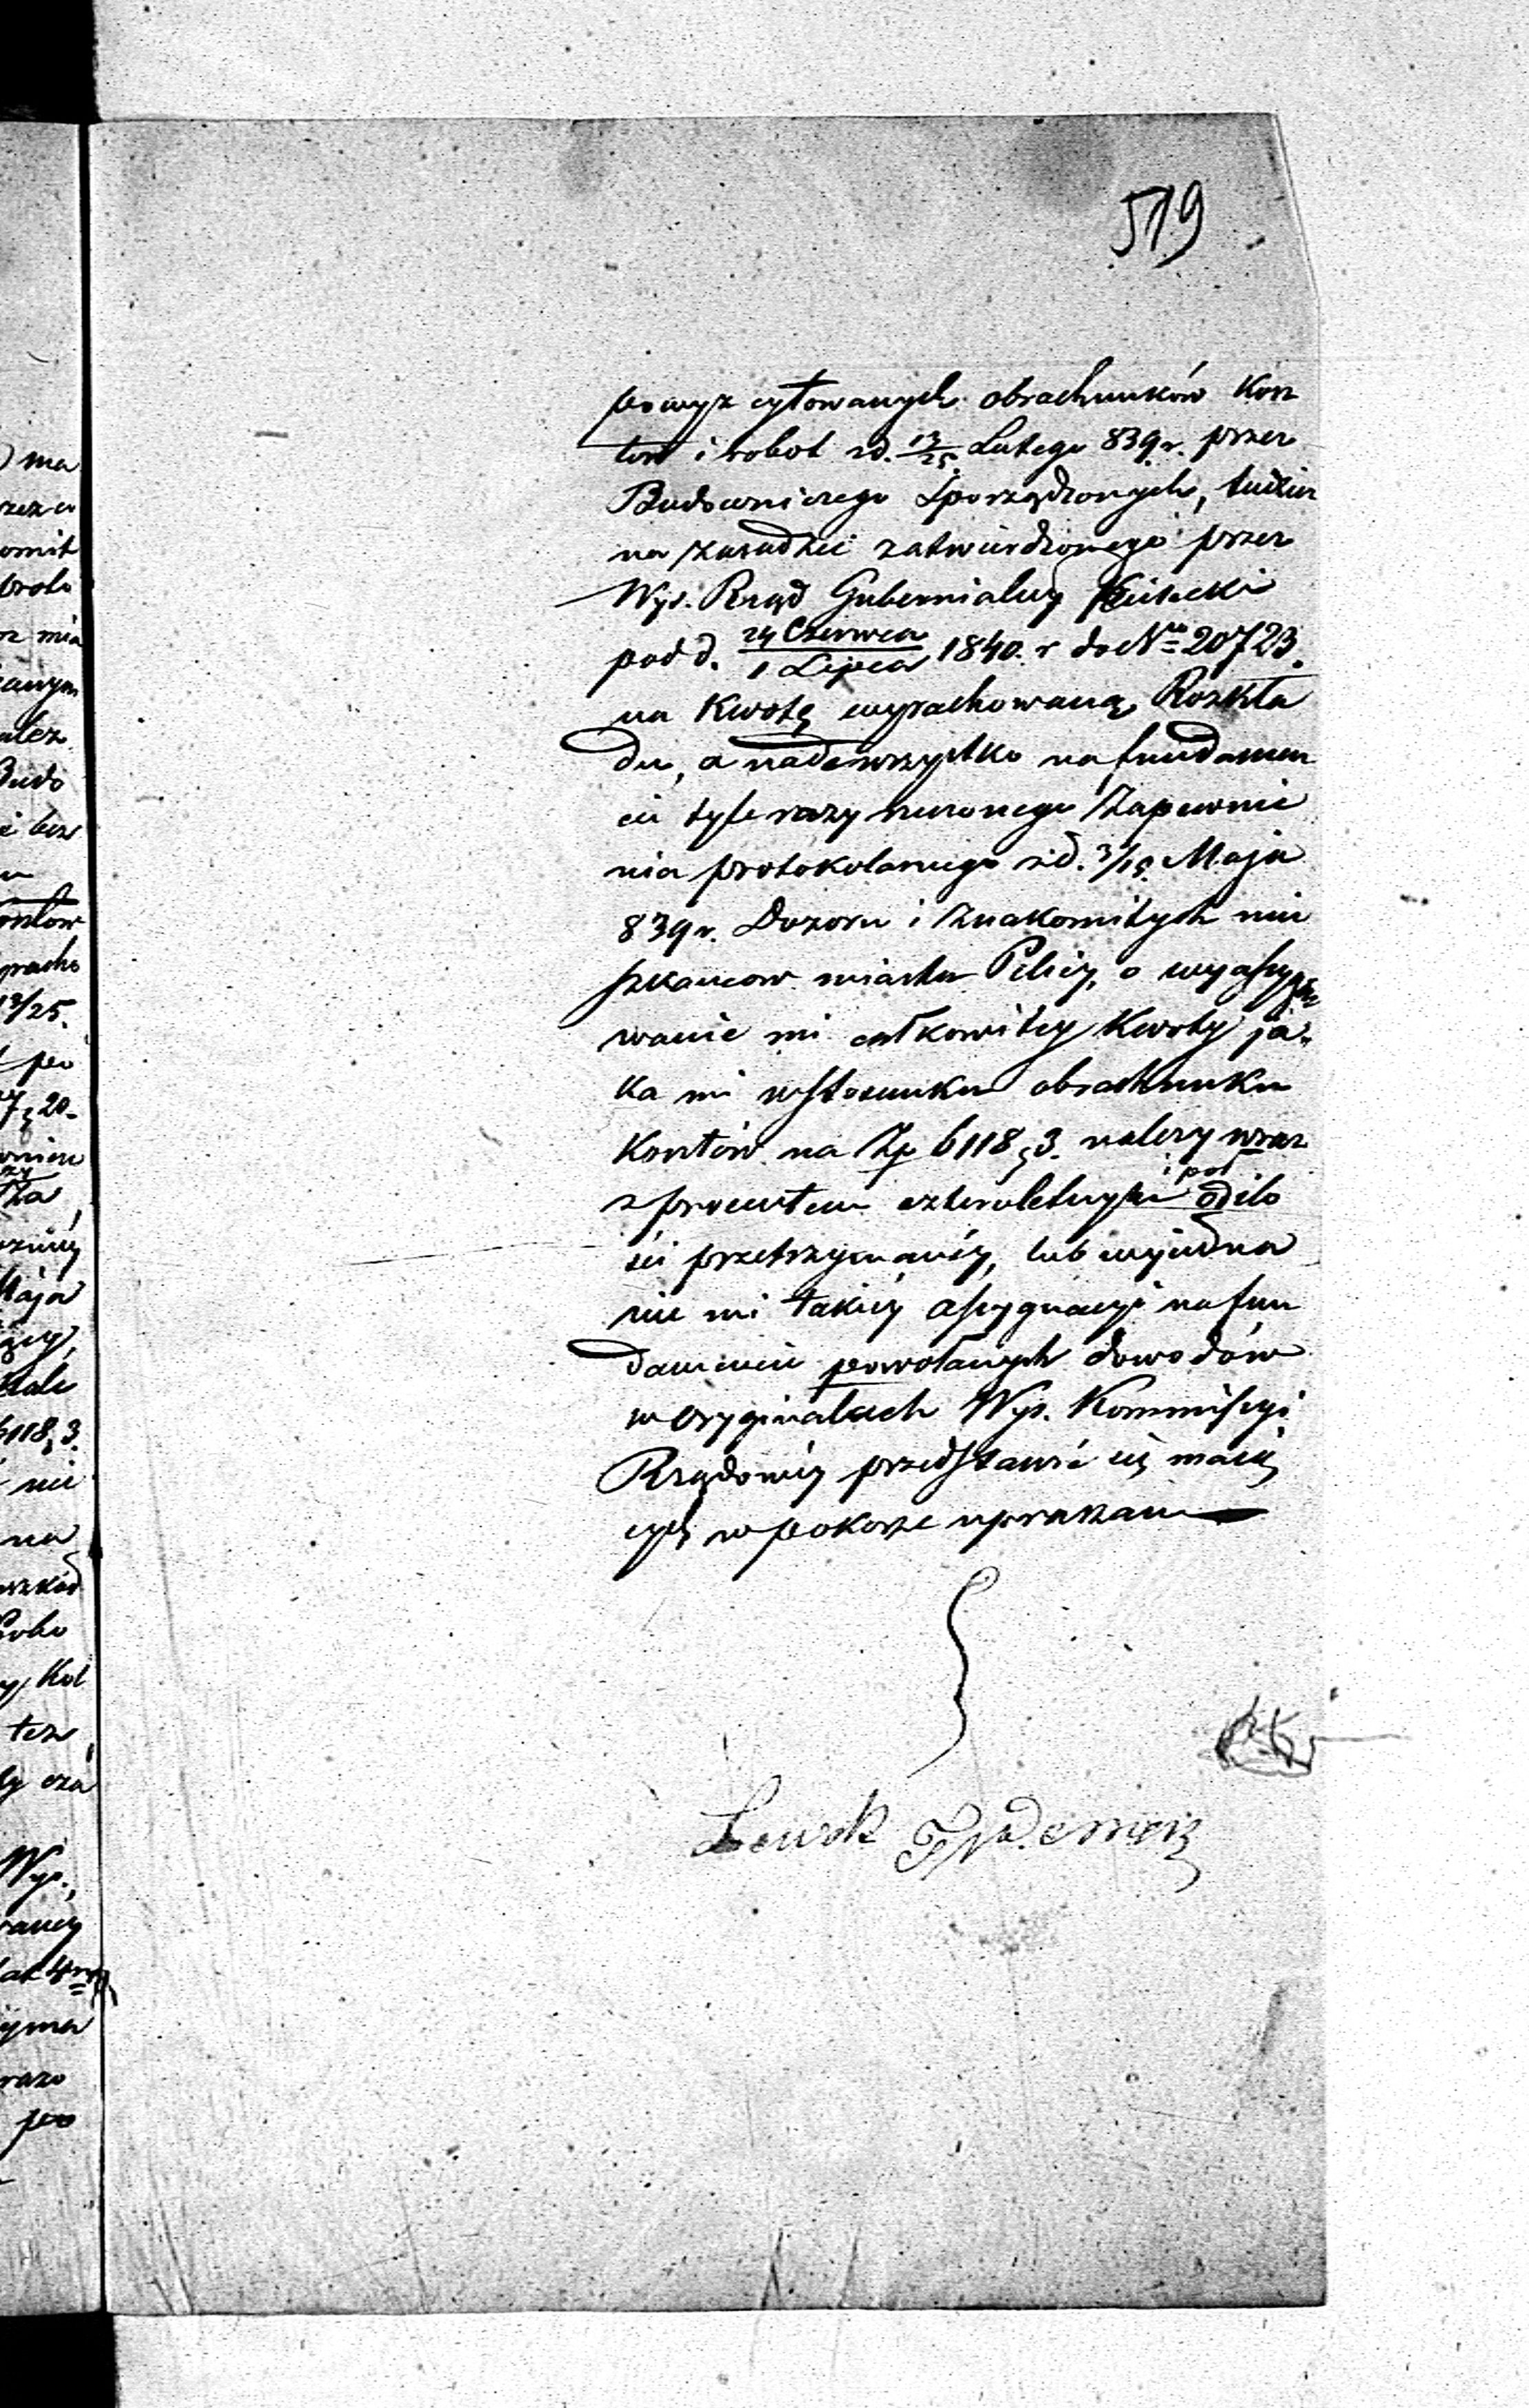 519
powyż cytowanych obrachunków Kosz
tów i robot z d. 13/25 Lutego 839 r. przez
Budowniczego sporządzonych, tudzież
na zasadzie zatwierdzonego przez
Wys. Rząd Gubernialny Kielecki
pod d. 24 Czerwca / 1 Lipca 1840. r do Nru 20723.
na Kwotę wyrachowaną Rozkła
du, a nadewszystko na fundamen
cie tyle razy rzeczonego Zapewnie
nia protokolarnego z d. 3/15. Maja
839 r. Dozoru i Znakomitych mie
szkancow miasta Pilicy, o wyassygno
wanie mi całkowitey Kwoty ja-
ka mi w stosunku obrachunku
Kosztów na Zp 6118 g 3. należy wraz
z procentem czteroletnym i poł od ilo
ści przetrzymaney, lub wyjedna
nie mi takiéy assygnacyi na fun
damencie powołanych dowodów
w oryginałach Wys. Kommissyi
Rządowéy przedstawić się maią
cych w pokorze upraszam
Lewek
ma
omit
mia
anym
alez
Budo
bez
13/25.
po
20.
Maja
6118 g 3.
nie
na
Kol
też
Wys.,
po